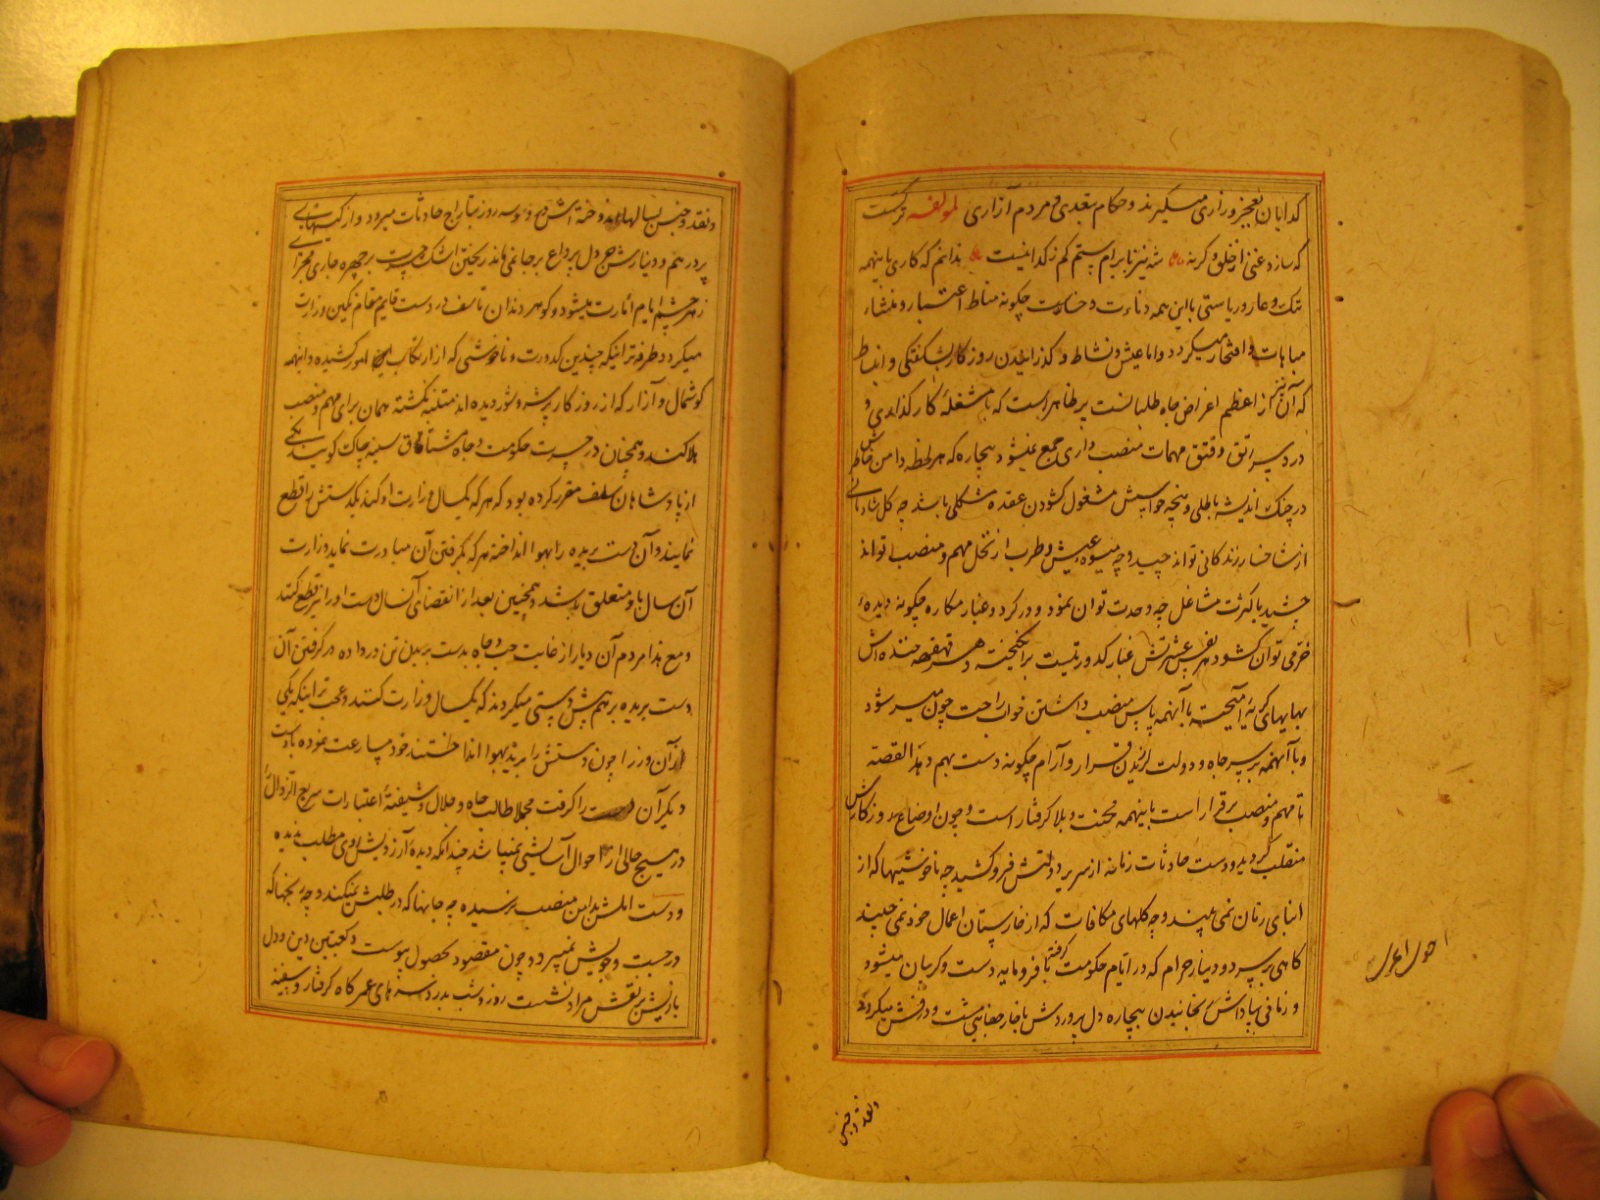 کدایان بعجز و زاری میگیرند و حکام بتعدی و مردم آزاری لمولفه ترکست
که سازد غنی از خلق و کرنه شه نیز بابرام ستم کم ز کدا نیست ندانم که کاری باینهمه
ننک و عار و ریاستی با این همه دناءت و خساست چکونه مناط اعتبار و منشاء
مباهات و افتخار میکردد و اما عیش و نشاط و کذرانیدن روزکار بشکفتکی و انبساط
که آن نیز از اعظم اغراض جاه طلبانست پر ظاهر است که با مشغلهٔ کار کذاری و
دردسر رتق و فتق مهمات منصب داری جمع نمیشود بیچاره که هر لحظه دامن خاطرش
در چنک اندیشه باطلی و پنجه حواسش مشغول کشودن عقده مشکلی باشد چه کل شادمانی
از شاخسار زندکانی تواند چید و چه میوه عیش و طرب از نخل مهم و منصب تواند
چشید با کثرت مشاغل چه وحدت توان نمود و در کرد و غبار مکاره چکونه دیدهٔ
خرمی توان کشود هر نفس عشرتش غبار کدورتیست برانکیخته و هر قهقهه خنده اش
بهایهای کریهٔ آمیخته با آنهمه پاس منصب داشتن خواب راحت چون میسر شود
و با آنهمه بر سر جاه و دولت لرزیدن قرار و آرام چکونه دست بهم دهد القصه
تا مهم و منصب برقرار است باینهمه محنت و بلا کرفتار است و چون اوضاع روزکارش
منقلب کردید و دست حادثات زمانه از سریر دولتش فرو کشید چه ناخوشیها که از
ابنای زمان نمی بیند و چه کلهای مکافات که از خارستان اعمال خود نمی چیند
کاهی بر سر دو دینار حرام که در ایام حکومت کرفته با فرومایه دست و کریبان میشود
و زمانی بپاداش رنجانیدن بیچاره دل پروردش با خار جفا
احوال اعراب
و نقد و جنس
و نقد و جنس بسالها اندوخته اش در دو سه روز بتاراج حادثات میرود و از کف
پر درهم و دینارش جز دل پر داغ بر جا نمیماند ز ریختن اشک حسرت بر چهره جاری
زهر چشم ایام اثارت میشود و کوهر دندان تاسف در دست قایم مقام نکین وزارت
میکردد و طرفه تر اینکه چندین کدورت و ناخوشی که از ارتکاب این امور کشیده و اینهمه
کوشمال و آزار که از روزکار پر شر و شور دیده اند متنبه نکشته همان برای مهم و منصب
هلاکند و همچنان در حسرت حکومت و جاه مشتاق سینه چاک کویند یکی
از پادشاهان سلف مقرر کرده بود که هر که یکسال وزارت او کند یکدستش را قطع
نمایند و آن دست بریده را بهوا انداخته هر که بکرفتن آن مبادرت نماید وزارت
آن سال باو متعلق باشد و همچنین بعد از انقضای آنسال دست او را نیز قطع کنند
و مع هذا مردم آن دیار از غایت حب جاه بدست بریدن تن در داده در کرفتن آن
دست بریده بر هم پیش دستی میکردند که یکسال وزارت کنند و عجب تر اینکه یکی
از آن وزرا چون دستش را بریده بهوا انداختند خود مسارعت نموده با دست
دیکر آن دست را کرفت مجملا طالب جاه و جلال و شیفتهٔ اعتبارات سریع الزوال را
در هیچ حالی از احوال آسایشی نمیباشد چندانکه دیدهٔ آرزویش روی مطلب ندیده
و دست املش بدامن منصب نرسیده چه جانها که در طلبش نمیکند و چه رنجها که
در جست و جویش نمیبرد و چون مقصود بحصول پیوست و کعبتین دین و دل
باز پیش بر نقش مراد نشست روز و شب بدردسرهای عمر کاه کرفتار و سفینه